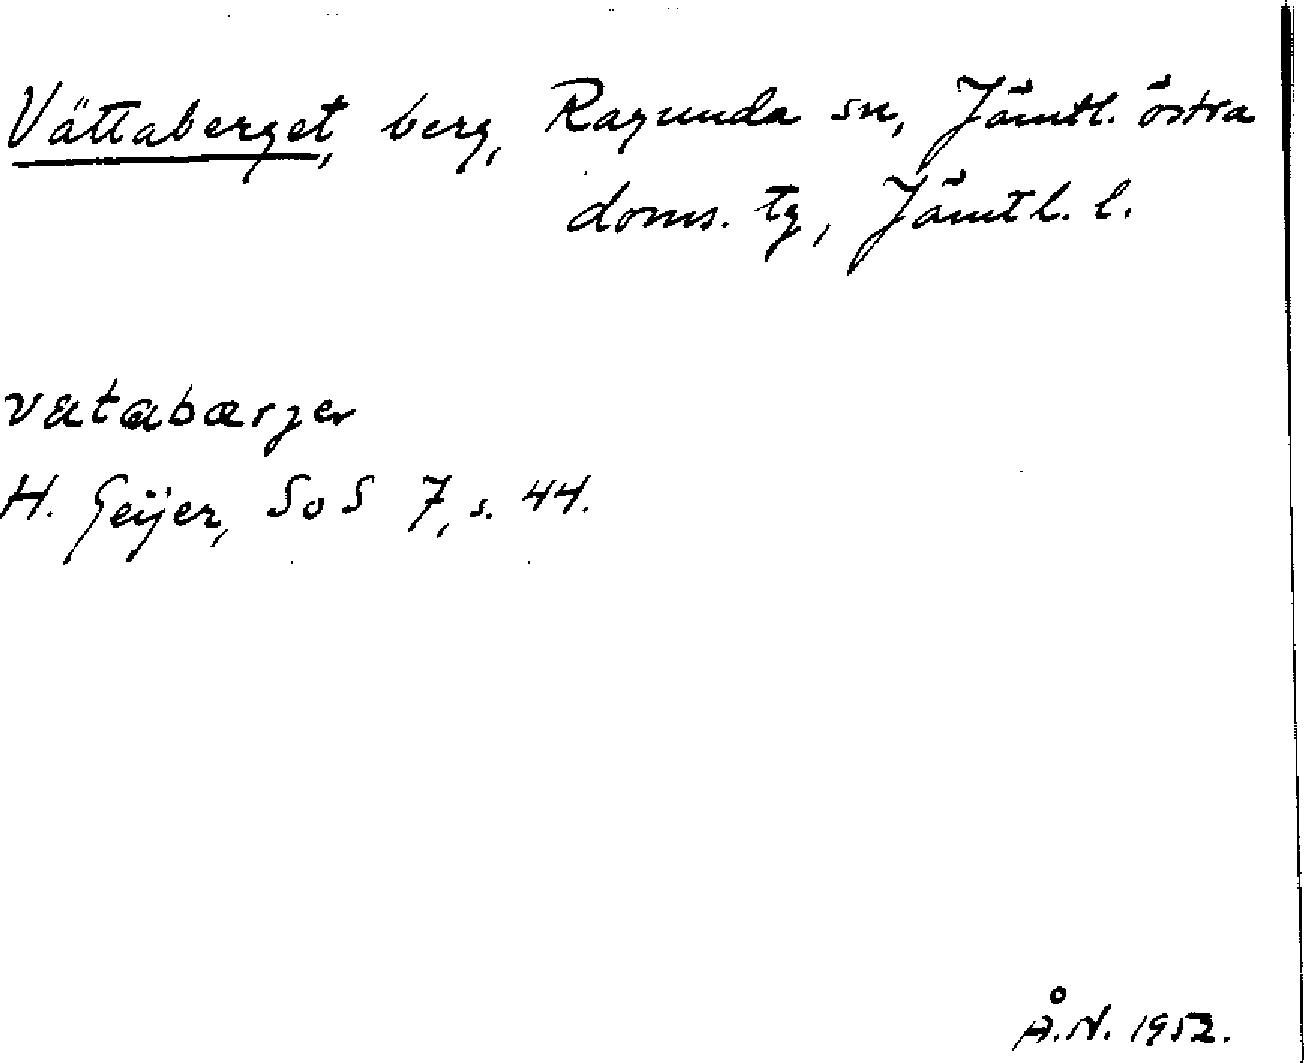 Vättaberget, berg, Ragunda sn, Jämtl. östra
doms. tg, Jämtl. l.
vætabærjer
H. Geijer, SoS 7, s. 44.
Å.N. 1952.